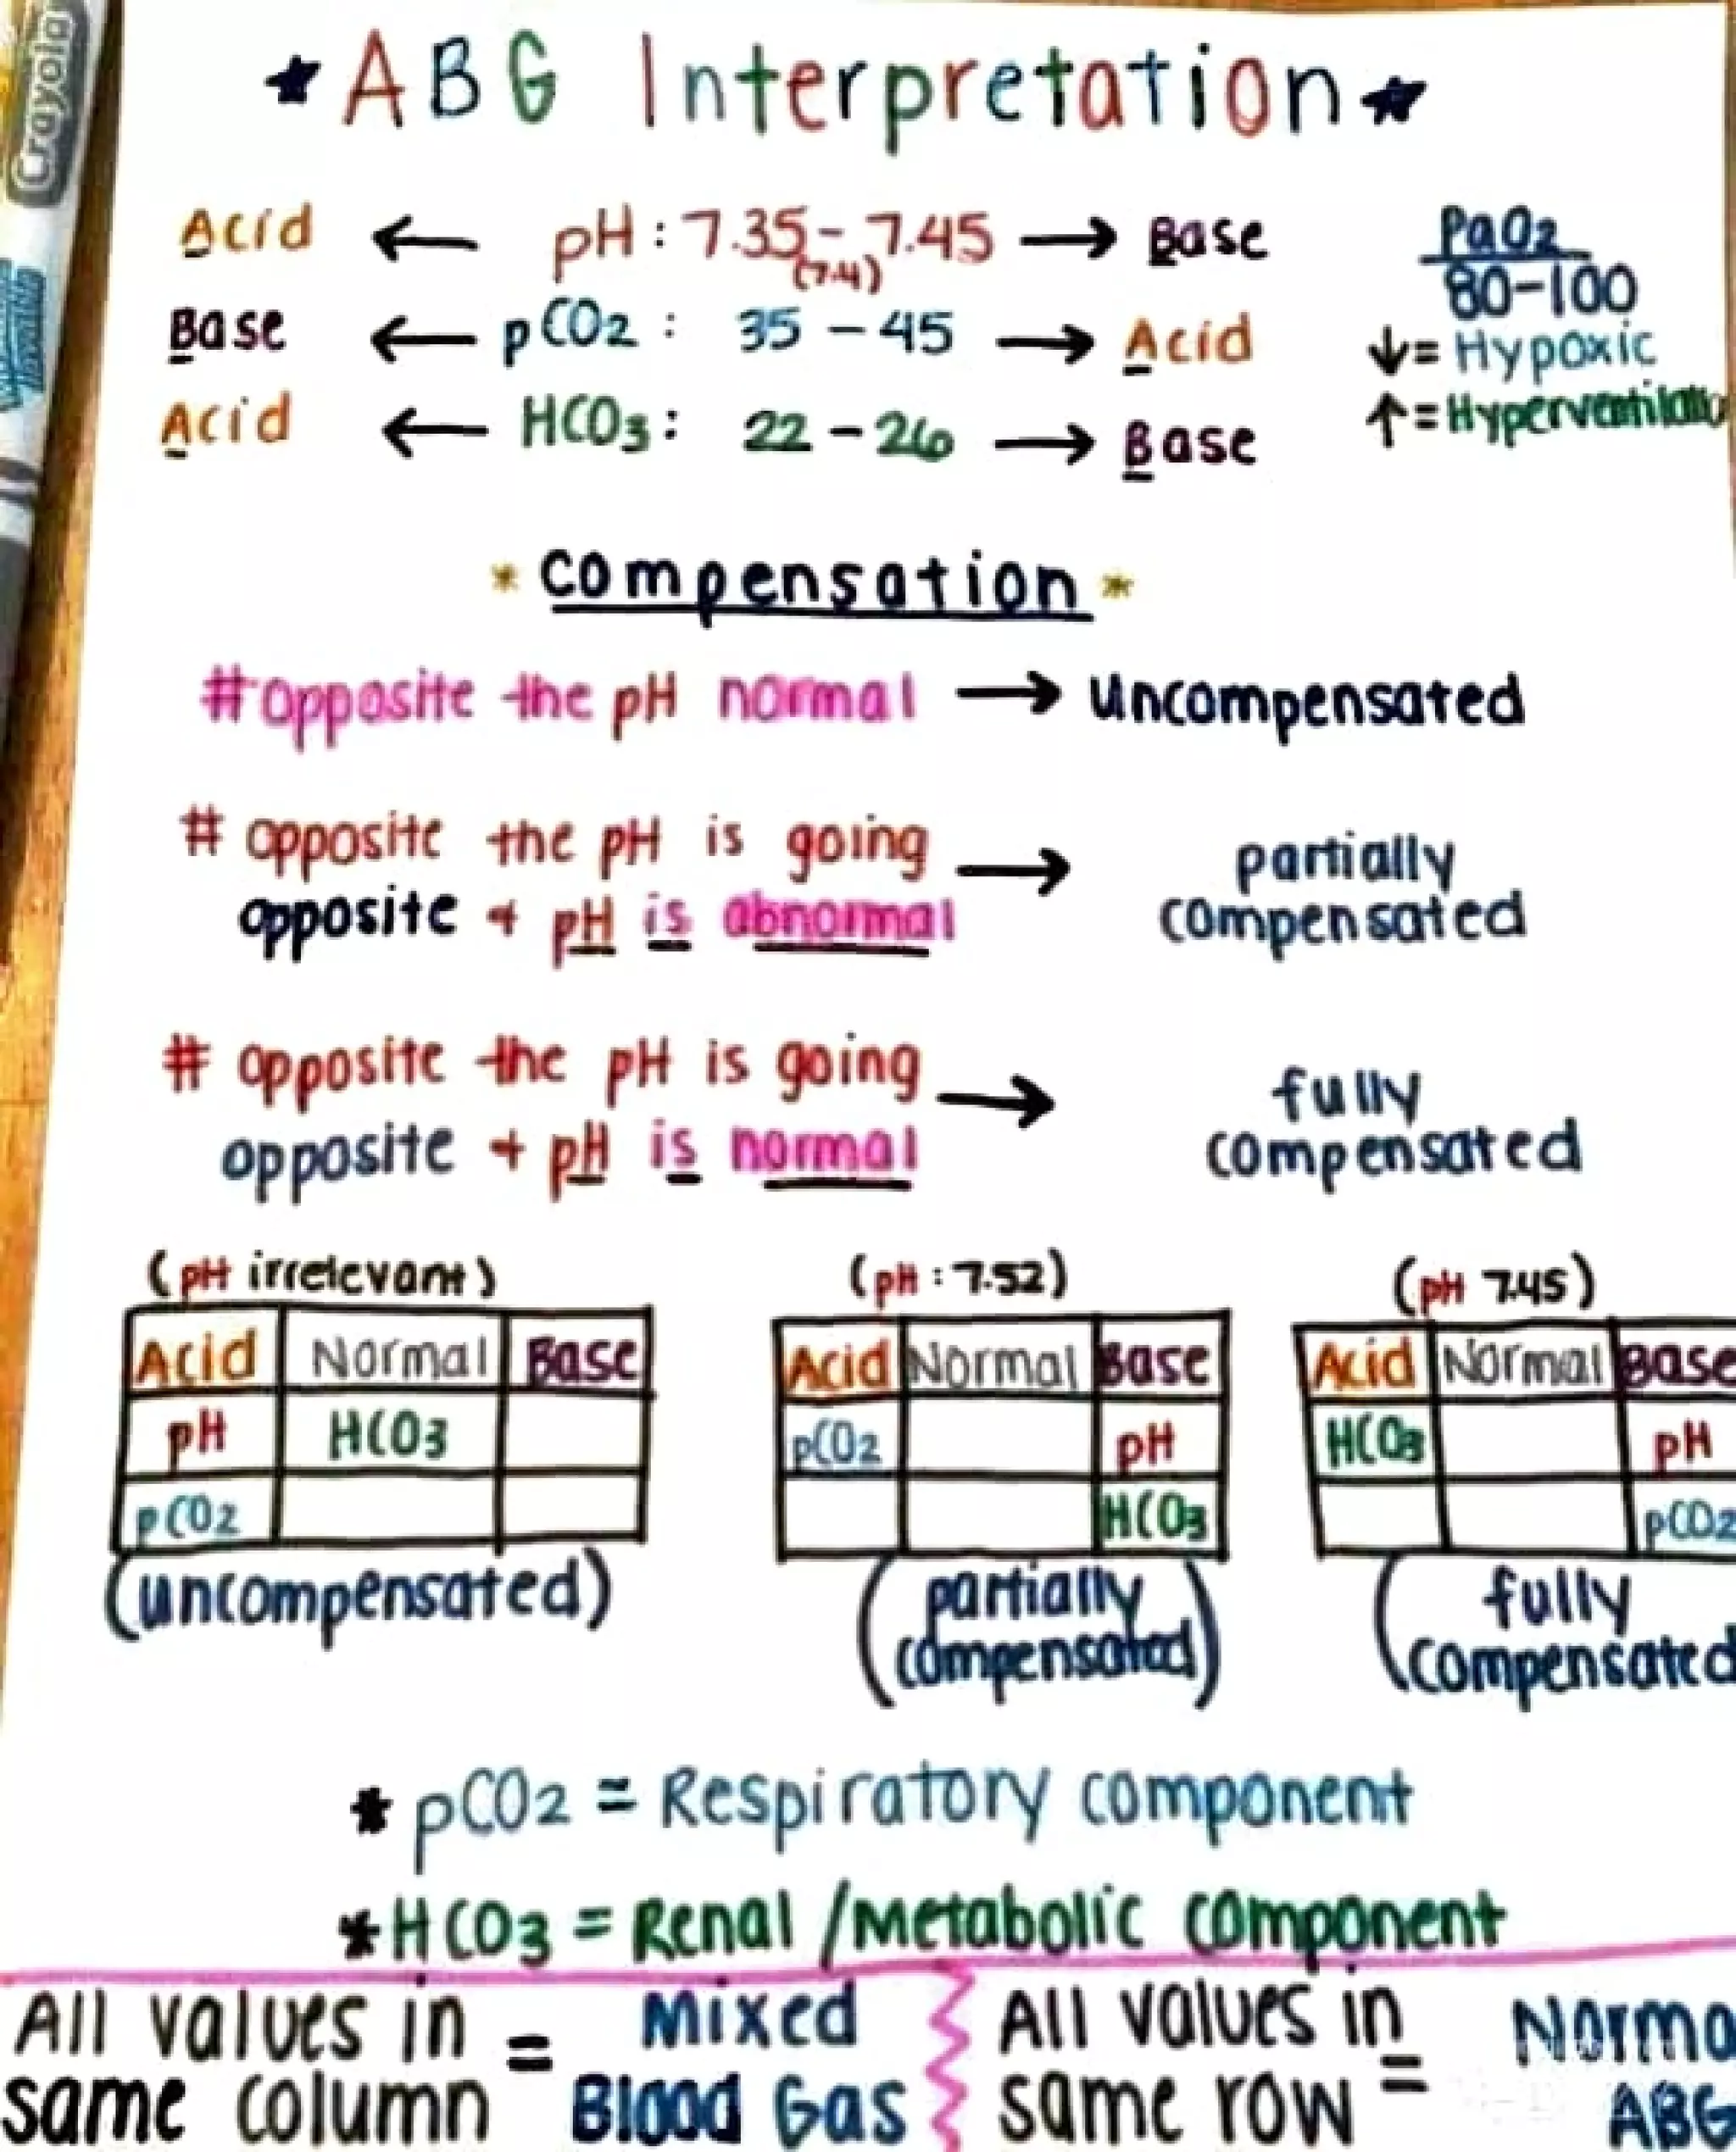 Crayola
★ ABG Interpretation ★
Acid ← pH : 7.35 - 7.45 → Base
(7.4)
Base ← pCO2 : 35 - 45 → Acid
Acid ← HCO3 : 22 - 26 → Base
PaO2
80-100
↓ = Hypoxic
↑ = Hyperventilatio
* Compensation *
# opposite the pH normal → Uncompensated
# opposite the pH is going
opposite + pH is abnormal → partially
compensated
# opposite the pH is going
opposite + pH is normal → fully
compensated
(pH irrelevant)
Acid Normal Base
pH HCO3
pCO2
(uncompensated)
(pH : 7.52)
Acid Normal Base
pCO2 pH
HCO3
(partially
compensated)
(pH 7.45)
Acid Normal Base
HCO3 pH
pCO2
(fully
compensated
* pCO2 = Respiratory component
* HCO3 = Renal / Metabolic component
All values in
same column = Mixed
Blood Gas
All values in
same row = Norma
ABG